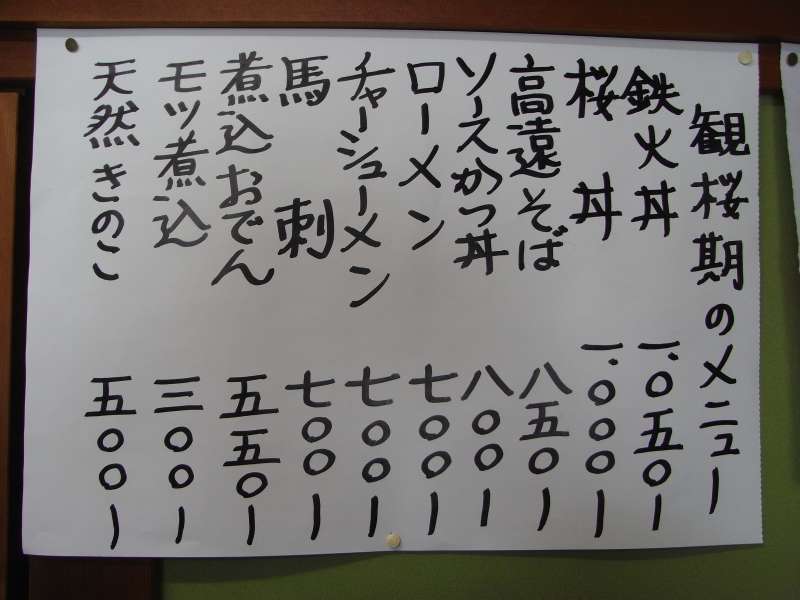 観桜期のメニュー
鉄火丼 一.〇五〇ー
桜丼 一.〇〇〇ー
高遠そば 八五〇ー
ソースかつ丼 八〇〇ー
ローメン 七〇〇ー
チャーシューメン 七〇〇ー
馬刺 七〇〇ー
煮込おでん 五五〇ー
モツ煮込 三〇〇ー
天然きのこ 五〇〇ー